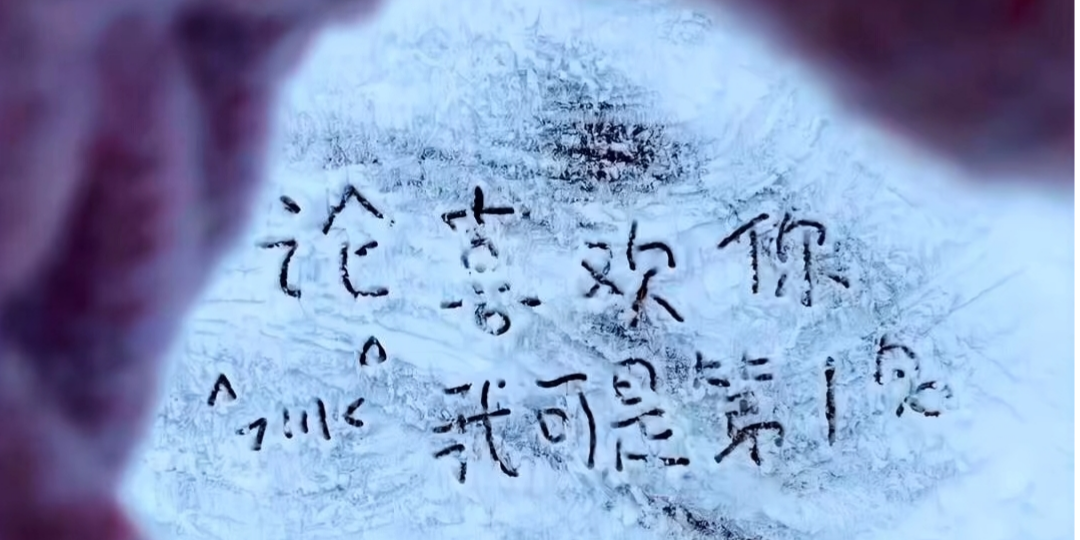 论喜欢你
我可是第1名